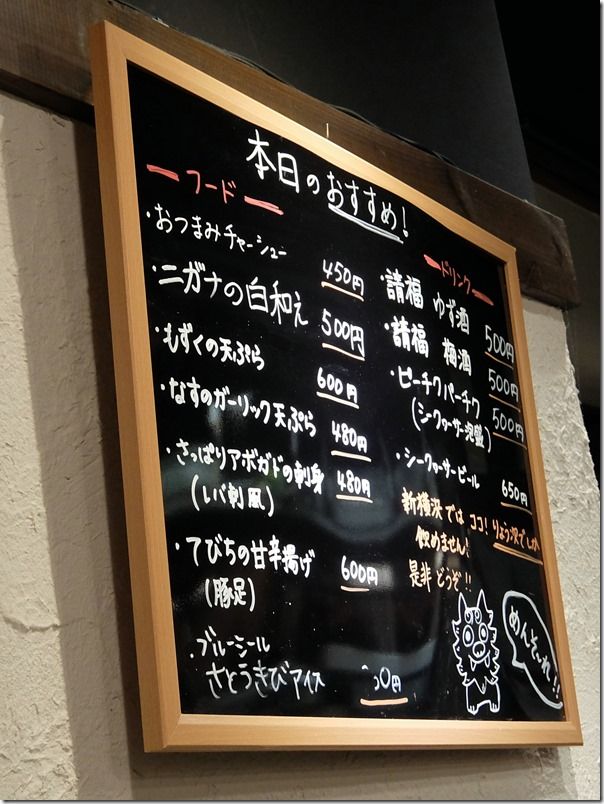 本日のおすすめ!
フード
・おつまみチャーシュー 450円
・ニガナの白和え 500円
・もずくの天ぷら 600円
・なすのガーリック天ぷら 480円
・さっぱりアボガドの刺身 480円
(レバ刺風)
・てびちの甘辛揚げ 600円
(豚足)
・ブルーシール
さとうきびアイス 円
ドリンク
・請福 ゆず酒 500円
・請福 梅酒 500円
・ピーチクパーチク 500円
(シークヮーサー泡盛)
・シークヮーサービール 650円
新横浜では ココ!りょう次でしか
飲めません!
是非どうぞ!!
めんそ〜れ!!